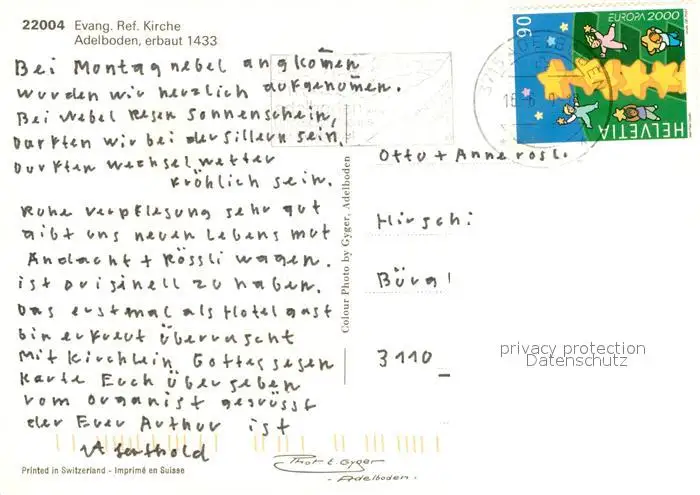 22004 Evang. Ref. Kirche
Adelboden, erbaut 1433
Bei Montagnebel angkomen
wurden wir herzlich aufgenomen.
Bei Nebel Regen Sonnenschein,
Durften wir bei der Sillern sein.
Durften Wechselwetter
fröhlich sein.
Ruhe verpflegung sehr gut
gibt uns neuen Lebens mut
Andacht + Rössli wagen.
ist originell zu haben.
Das erstmal als Hotel gast
bin erfreut Überrascht
Mit Kirchlein Gottes segen
Karte Euch Übergeben
vom Organist gegrüsst
der Euer Arthur ist
A Berthold
Printed in Switzerland - Imprimé en Suisse
Colour Photo by Gyger, Adelboden
Phot E. Gyger
- Adelboden.
EUROPA 2000
90
HELVETIA
3715 ADELBODEN
Otto + Annerosl.
Hirschi
Bürgl
3110
privacy protection
Datenschutz